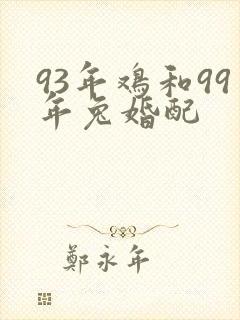 93年鸡和99
年兔婚配
鄭永年